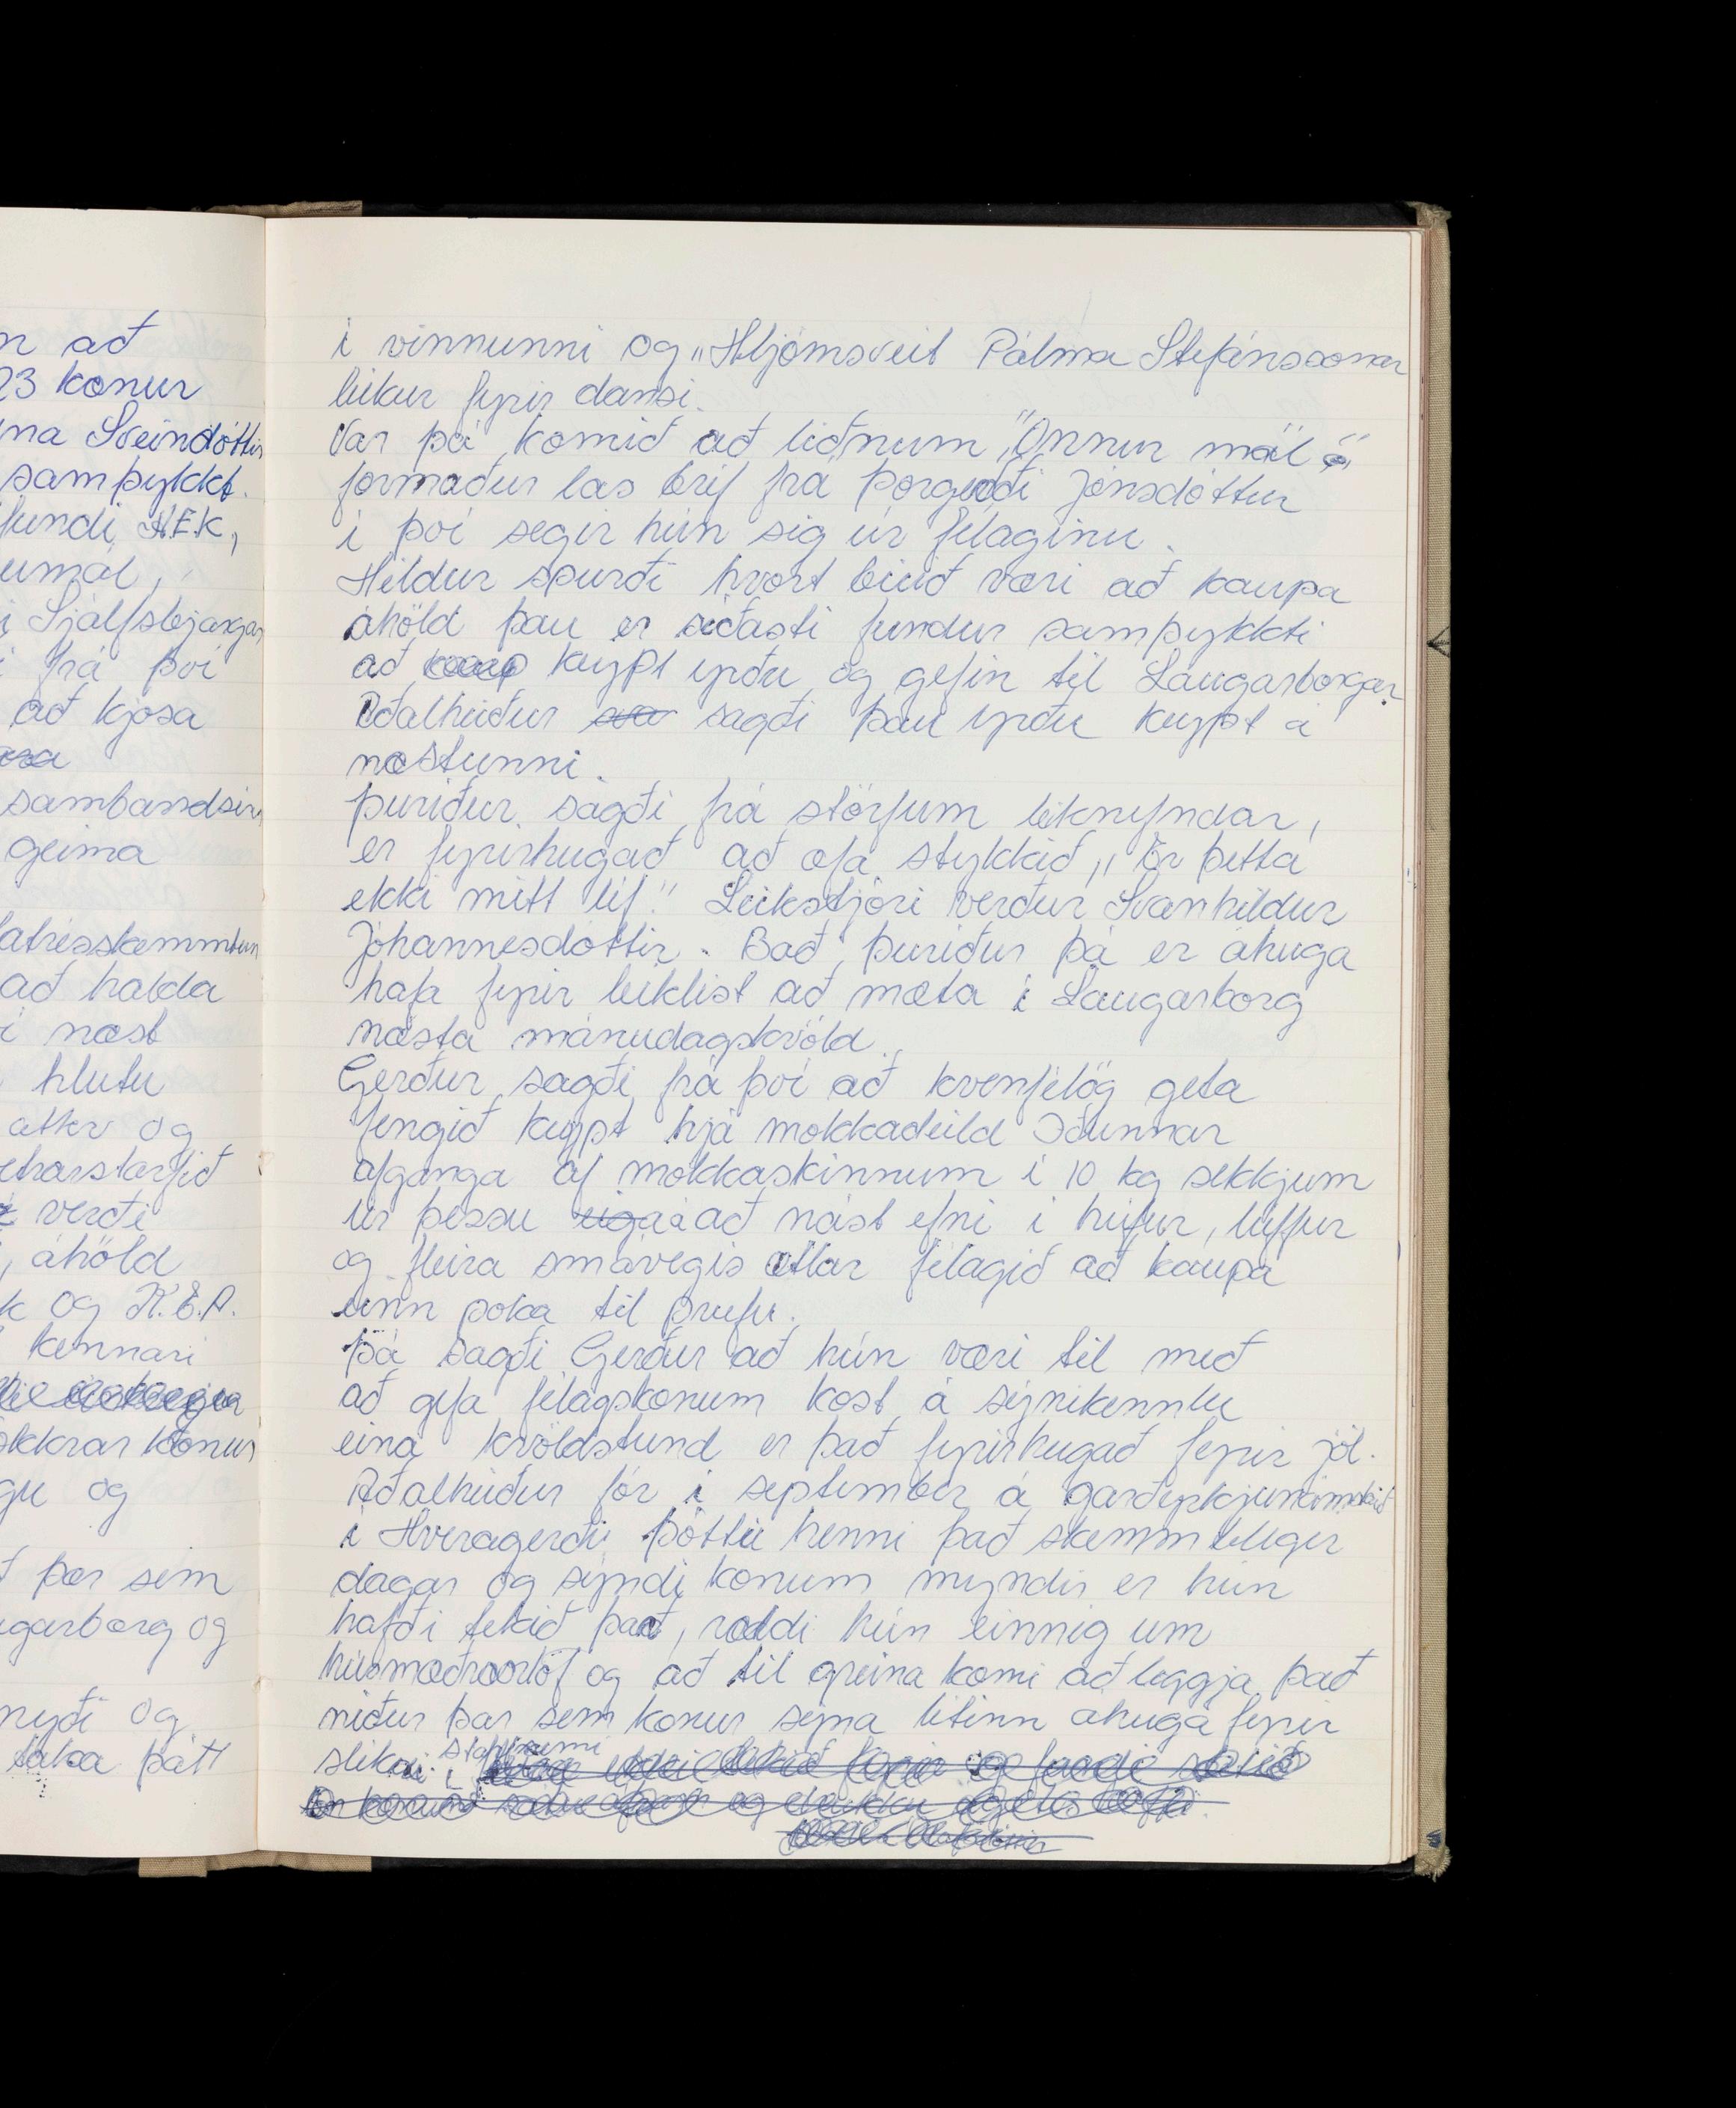 n að
23 konur
na Sveindóttir
samþykkt.
fundi H.E.K,
umál,
i Sjálfsbjargar
i frá því
að kjósa
sambandsin
geima
að halda
i næst
hlutu
atkv og
etrarstarfið
verði
, áhöld
k og K.E.A.
kennari
okkrar konur
gu og
þær sem
ugarborg og
nyði og
taka þátt
i vinnunni og „Hljómsveit Pálma Stefánssonar
leikur fyrir dansi.
Var þá komið að liðnum "Önnur mál"
formaður las bréf frá Þorgerði Jónsdóttur
i því segir hún sig úr félaginu.
Hildur spurði hvort búið væri að kaupa
áhöld þau er síðasti fundur samþykkti
að keypt yrðu og gefin til Laugarborgar
Aðalheiður sagði þau yrðu keypt á
næstunni.
Þuríður sagði frá störfum leiknefndar,
er fyrirhugað að æfa stykkið „Er þetta
ekki mitt líf." Leikstjóri verður Svanhildur
Jóhannesdóttir. Bað Þuríður þá er áhuga
hafa fyrir leiklist að mæta i Laugarborg
næsta mánudagskvöld.
Gerður sagði frá því að kvenfélög geta
fengið keypt hjá mokkadeild Iðunnar
afganga af mokkaskinnum i 10 kg sekkjum
úr þessu eiga á að nást efni i húfur, lúffur
og fleira smávegis ætlar félagið að kaupa
einn poka til prufu.
Þá sagði Gerður að hún væri til með
að gefa félagskonum kost á sýnikennslu
eina kvöldstund er það fyrirhugað fyrir jól.
Aðalheiður fór i september á garðyrkjunámskeið
i Hveragerði þóttu henni það skemmtilegir
dagar og sýndi konum myndir er hún
hafði tekið þar, ræddi hún einnig um
húsmæðraorlof og að til greina komi að leggja það
niður þar sem konur sýna lítinn áhuga fyrir
slíkri starfsemi